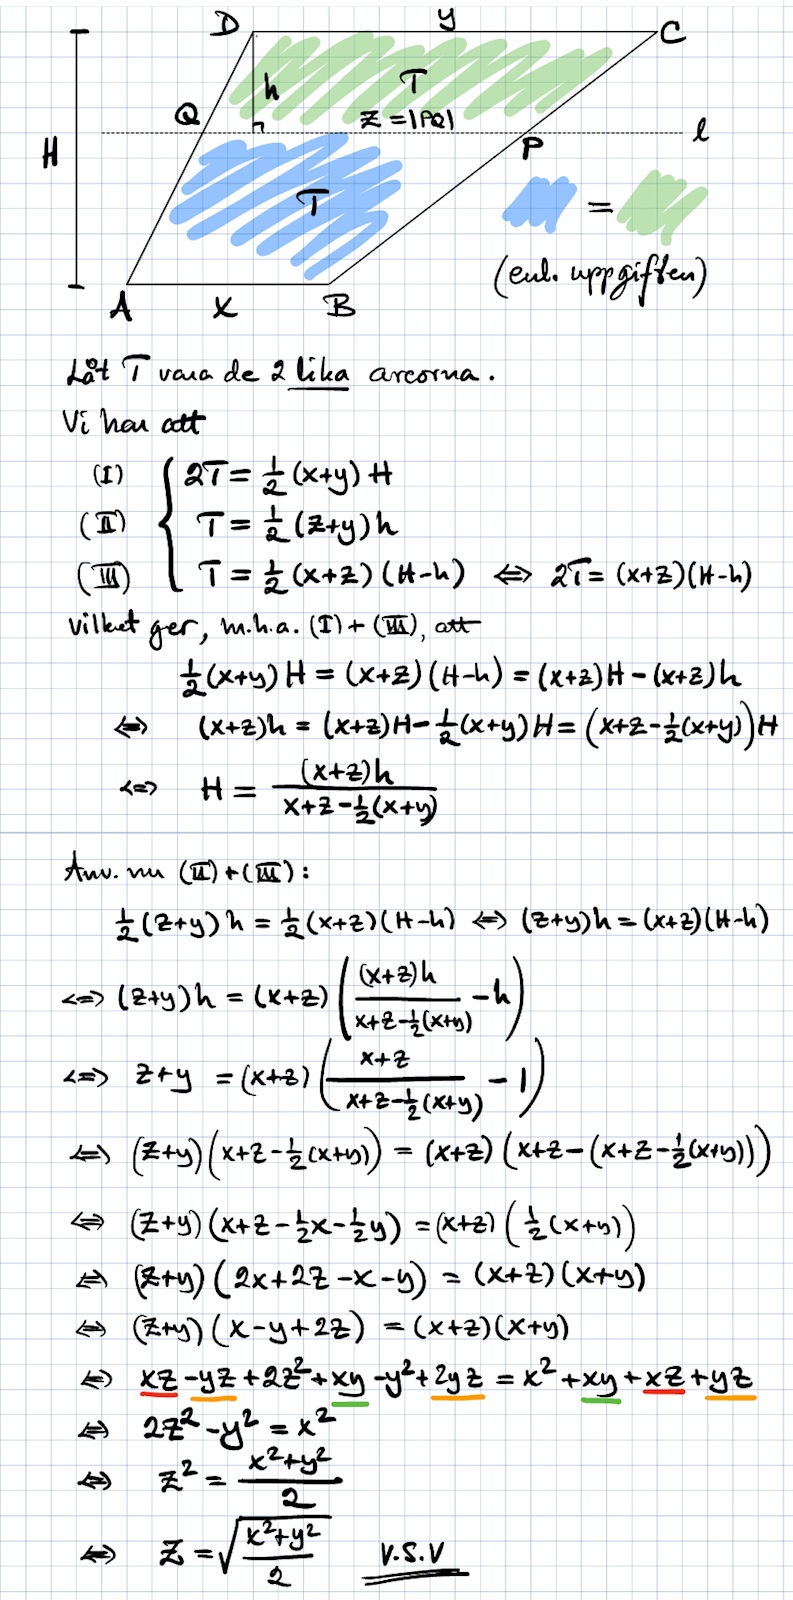 D y C
h T
Q z = |PQ| l
H P
T =
(enl. uppgiften)
A x B
Låt T vara de 2 lika areorna.
Vi har att
(I) 2T = 1/2 (x+y) H
(II) T = 1/2 (z+y) h
(III) T = 1/2 (x+z) (H-h) ⇔ 2T = (x+z)(H-h)
vilket ger, m.h.a. (I) + (III), att
1/2 (x+y) H = (x+z) (H-h) = (x+z)H - (x+z)h
⇔ (x+z)h = (x+z)H - 1/2 (x+y) H = (x+z - 1/2 (x+y)) H
⇔ H = (x+z)h / (x+z - 1/2 (x+y))
Anv. nu (II) + (III):
1/2 (z+y) h = 1/2 (x+z) (H-h) ⇔ (z+y)h = (x+z)(H-h)
⇔ (z+y) h = (x+z) ((x+z)h / (x+z - 1/2 (x+y)) - h)
⇔ z+y = (x+z) ((x+z) / (x+z - 1/2 (x+y)) - 1)
⇔ (z+y) (x+z - 1/2 (x+y)) = (x+z) (x+z - (x+z - 1/2 (x+y)))
⇔ (z+y) (x+z - 1/2 x - 1/2 y) = (x+z) (1/2 (x+y))
⇔ (z+y) (2x+2z-x-y) = (x+z) (x+y)
⇔ (z+y) (x-y+2z) = (x+z) (x+y)
⇔ xz - yz + 2z² + xy - y² + 2yz = x² + xy + xz + yz
⇔ 2z² - y² = x²
⇔ z² = (x²+y²) / 2
⇔ z = √((x²+y²) / 2) V.S.V